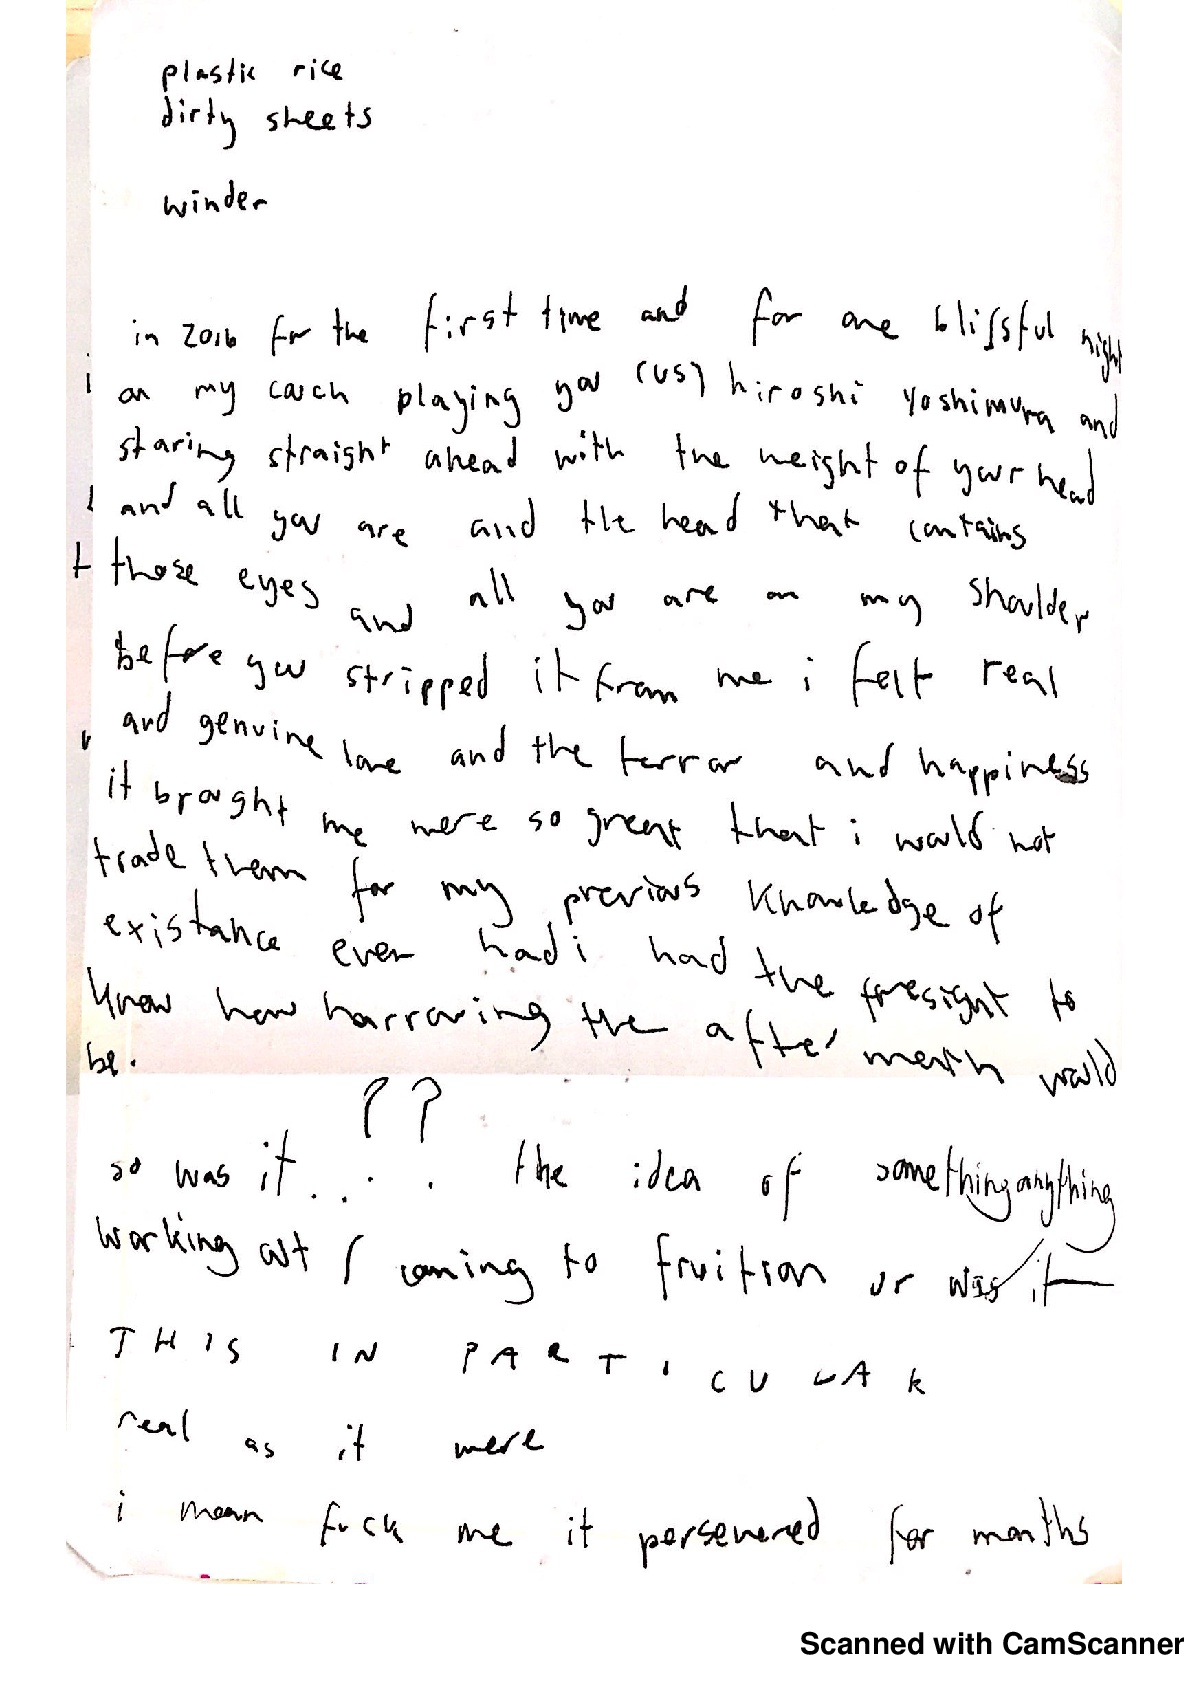 plastic rice
dirty sheets
winder
in 2016 for the first time and for one blissful night
on my couch playing you (us) hiroshi yoshimura and
staring straight ahead with the weight of your head
and all you are and the head that contains
those eyes and all you are on my shoulder
before you stripped it from me i felt real
and genuine love and the terror and happiness
it brought me were so great that i would not
trade them for my previous knowledge of
existance even had i had the foresight to
know how harrowing the after math would
be.
??
so was it.... the idea of something anything
working out / coming to fruition or was it—
THIS IN PARTICULAR
real as it were
i mean fuck me it persevered for months
Scanned with CamScanner